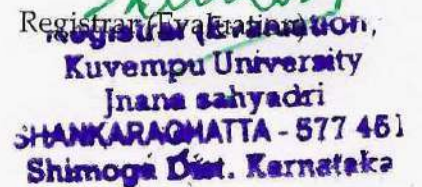 Registrar (Evaluation)
Registrar (Evaluation,
Kuvempu University
Jnana sahyadri
SHANKARAGHATTA - 577 451
Shimoga Dist. Karnataka